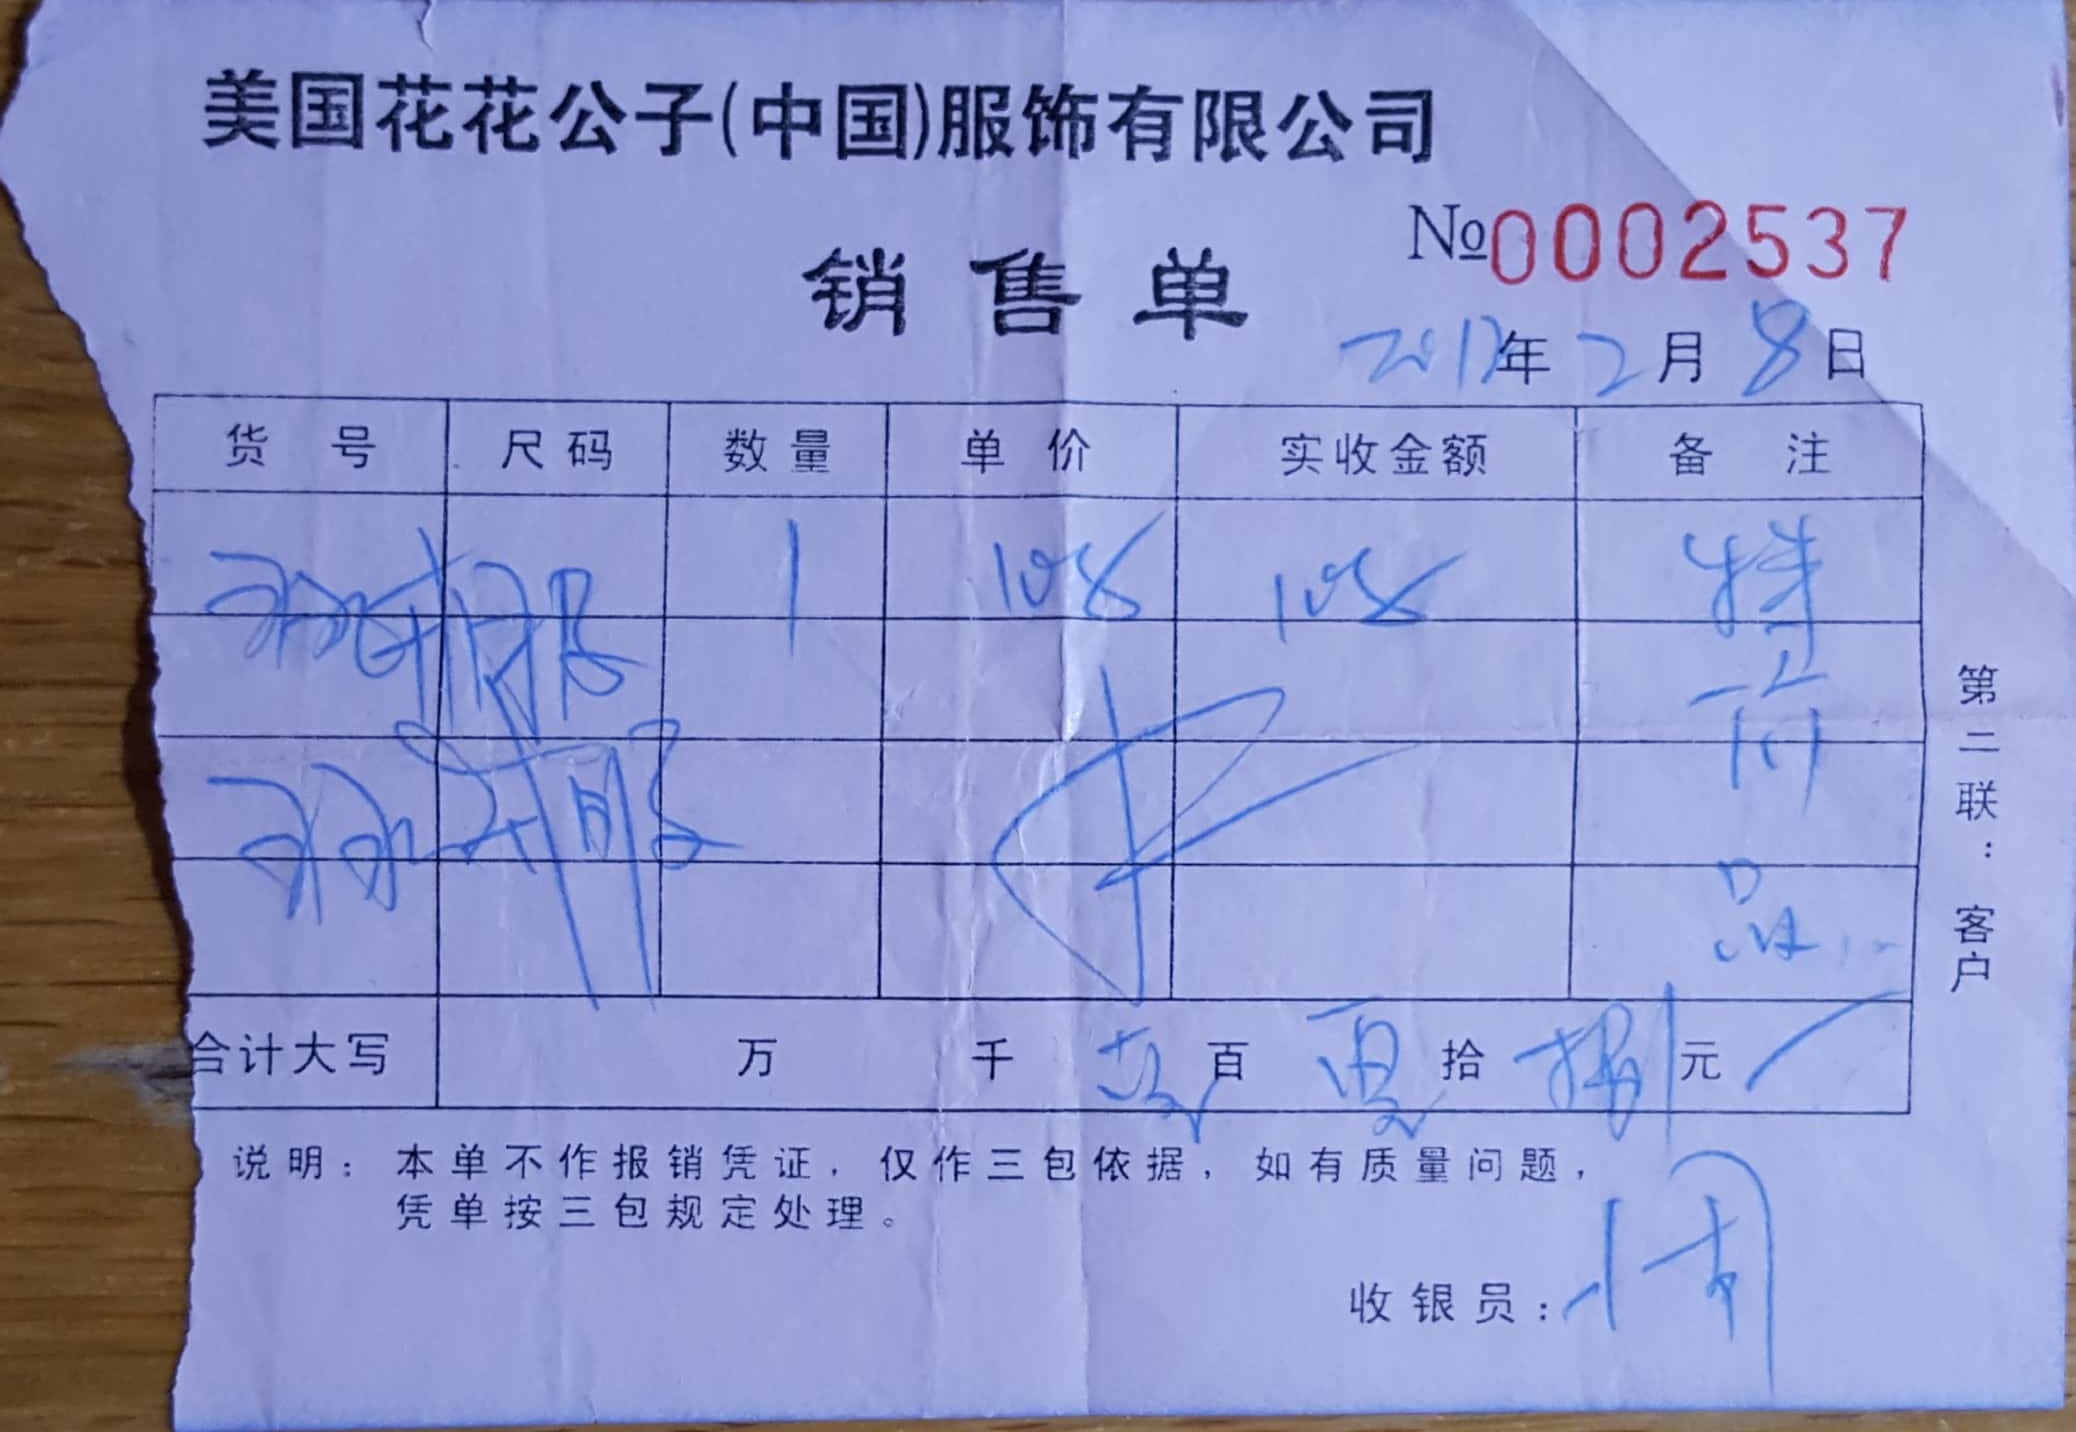 美国花花公子(中国)服饰有限公司
№0002537
销售单
年 2月 8日
货号 尺码 数量 单价 实收金额 备注
1 108 108 特
价
品
合计大写 万 千 壹百 零拾 捌元
第二联：客户
说明：本单不作报销凭证，仅作三包依据，如有质量问题，
凭单按三包规定处理。
收银员：小周